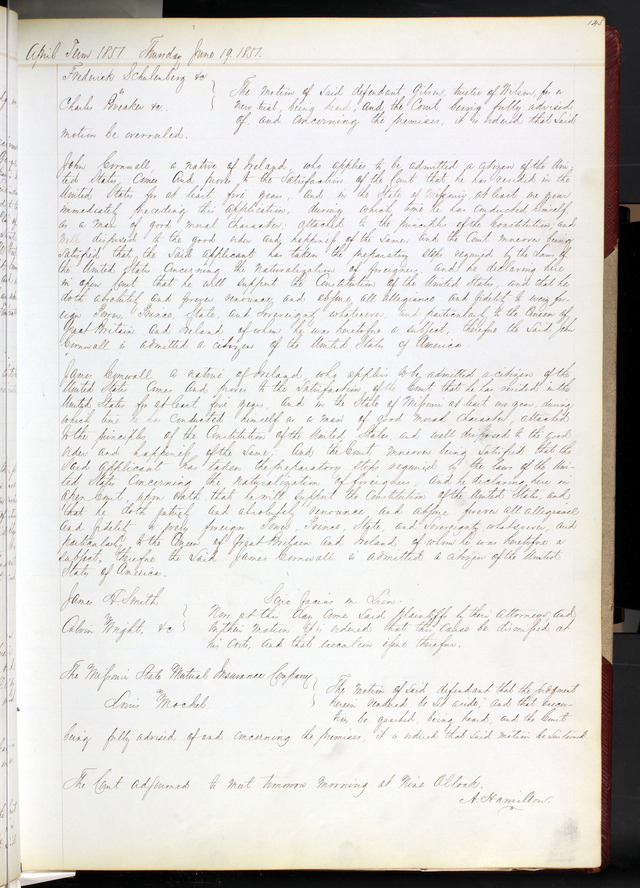 145
April Term 1851. Thursday June 19. 1851.
Frederick Schulenberg &c
vs
Charles Breaker &c.
The motion of said defendant, Gibson, trustee of Wilson, for a
new trial, being heard, and the Court being fully advised
of and concerning the premises, it is ordered that said
motion be overruled.
John Cornwall, a native of Ireland, who applies to be admitted a citizen of the Uni-
ted States, comes and proves to the satisfaction of the Court that he has resided in the
United States for at least five years, and in the State of Missouri, at least one year
immediately preceding this application, during which time he has conducted himself
as a man of good moral character, attached to the principles of the Constitution, and
well disposed to the good order and happiness of the same; and the Court moreover being
satisfied that the said applicant has taken the preparatory steps required by the laws of
the United States concerning the naturalization of foreigners, and he declaring here
in open Court that he will support the Constitution of the United States, and that he
doth absolutely and forever renounce and abjure all allegiance and fidelity to every for-
eign Power, Prince, State, and Sovereignty whatsoever, and particularly to the Queen of
Great Britain and Ireland, of whom he was heretofore a subject, therefore the said John
Cornwall is admitted a citizen of the United States of America.
James Cornwall a native of Ireland, who applies to be admitted a citizen of the
United States comes and proves to the satisfaction of the Court that he has resided in the
United States for at least five years, and in the State of Missouri at least one year, during
which time he has conducted himself as a man of good moral character, attached
to the principles of the Constitution of the United States and well disposed to the good
order and happiness of the same; and the Court moreover being satisfied that the
said applicant has taken the preparatory steps required by the laws of the Uni-
ted States concerning the naturalization of foreigners, and he declaring here in
open Court, upon oath, that he will support the Constitution of the United States, and
that he doth entirely and absolutely renounce and abjure forever all allegiance
and fidelity to every foreign Power, Prince, State, and Sovereignty whatsoever, and
particularly to the Queen of Great Britain and Ireland, of whom he was heretofore a
subject, therefore the said James Cornwall is admitted a citizen of the United
States of America.
James H. Smith
vs
Calvin Wright, &c
Scire facias on Lien.
Now at this day come said Plaintiffs by their Attorneys, and
on their motion it is ordered that this cause be dismissed at
his costs, and that execution issue therefor.
The Missouri State Mutual Insurance Company
vs
Louis Mochel
The motion of said defendant that the judgment
herein rendered be set aside, and that execu-
tion be quashed, being heard, and the Court
being fully advised of and concerning the premises, it is ordered that said motion be sustained
The Court adjourned to meet tomorrow morning at Nine Oclock.
A. Hamilton.